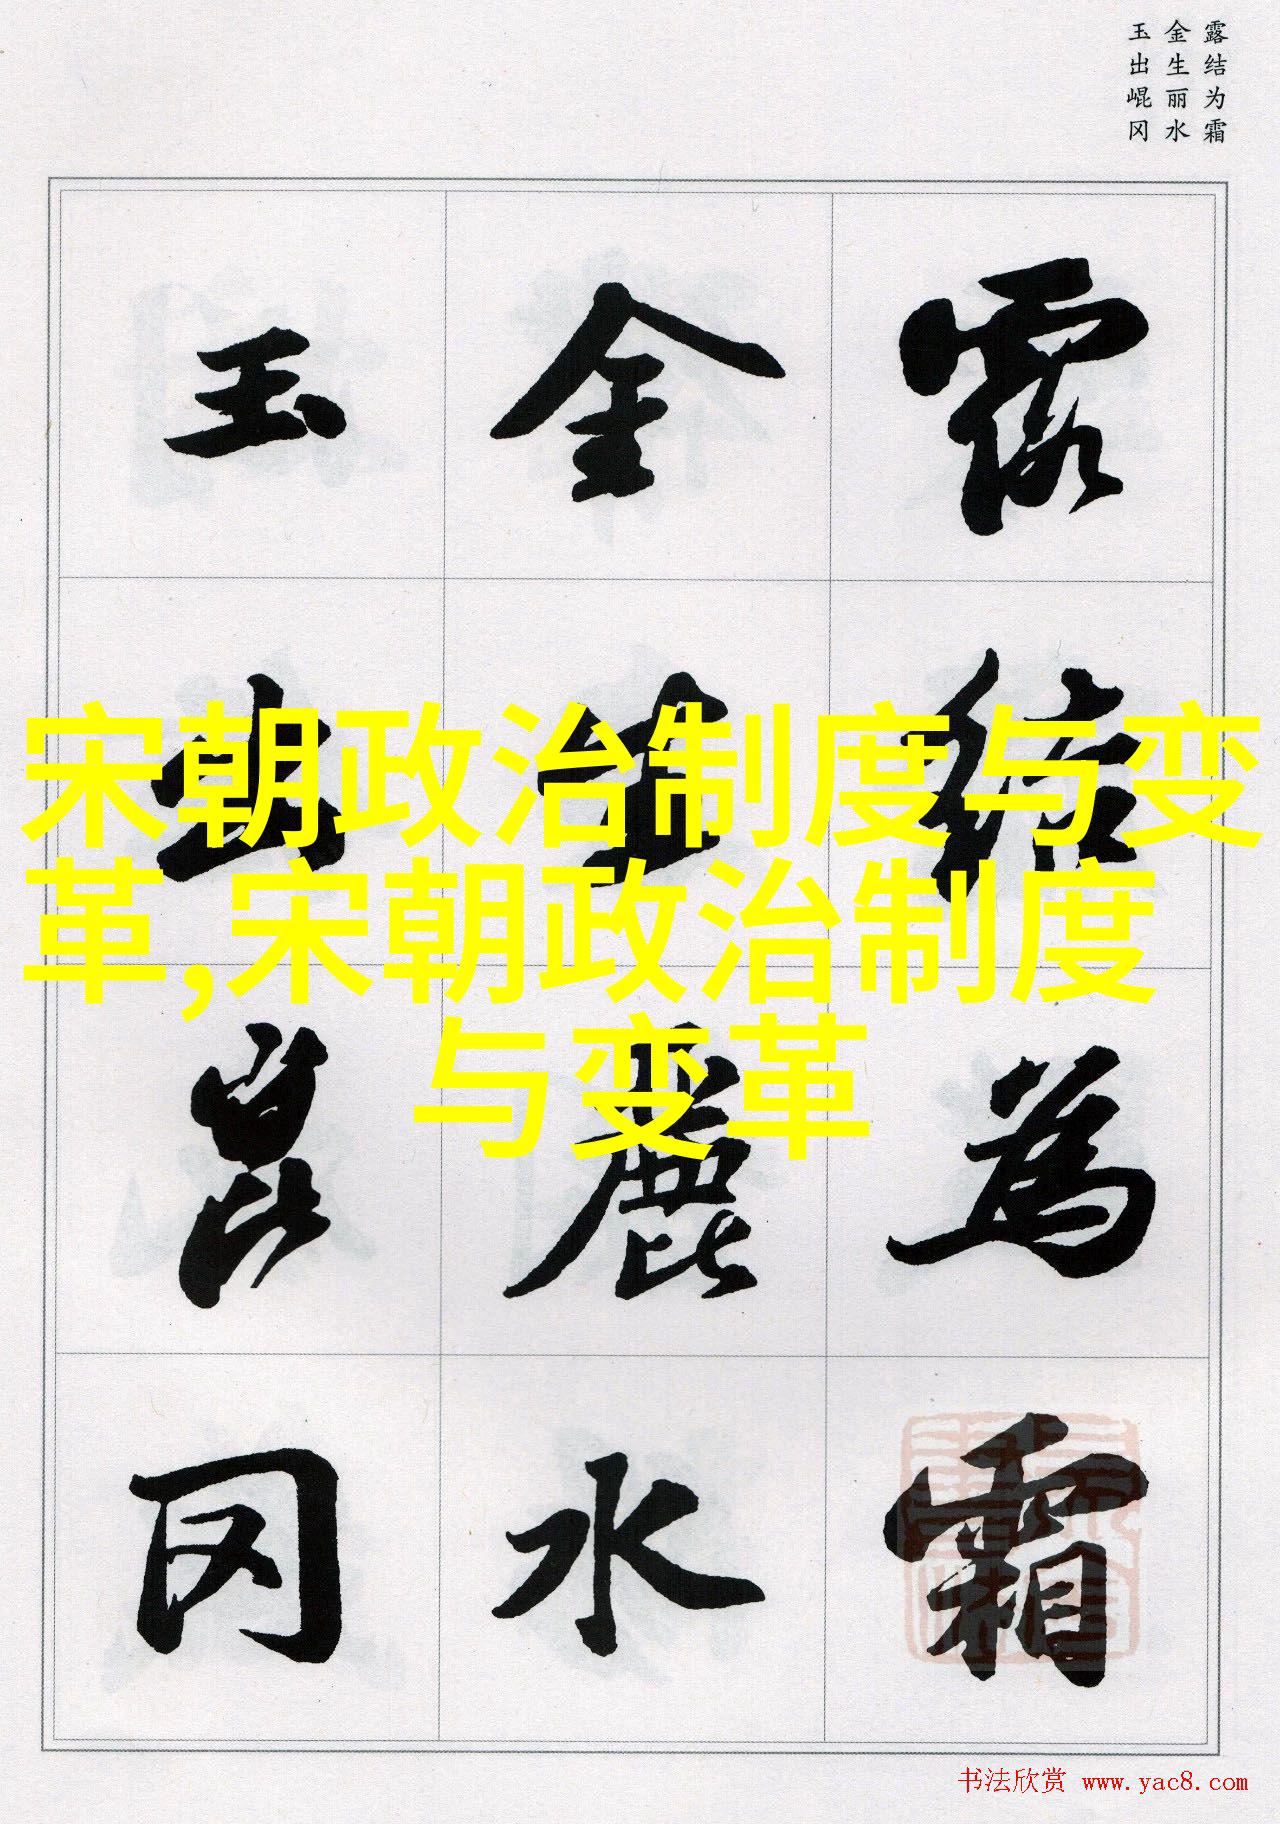 露结为霜
金生丽水
玉出崐冈
露结為霜
金生麗水
玉出崑冈
宋朝政治制度与变
革,宋朝政治制度
与变革
书法欣赏 www.yac8.com